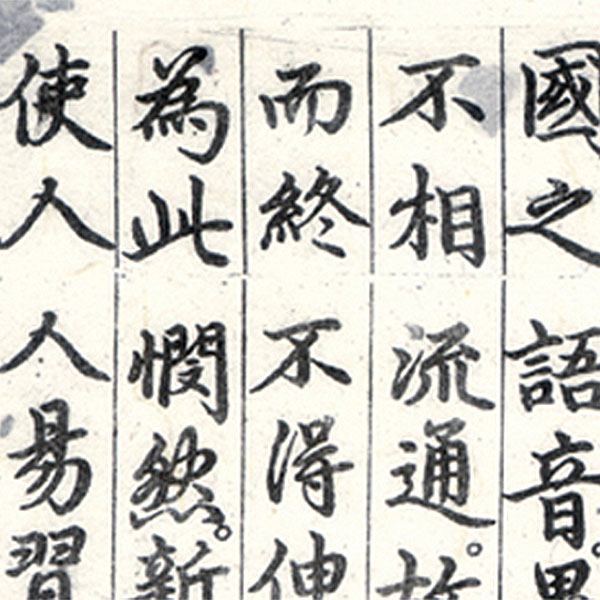 國之語音。異
不相流通。故
而終不得伸
為此憫然。新
使人人易習